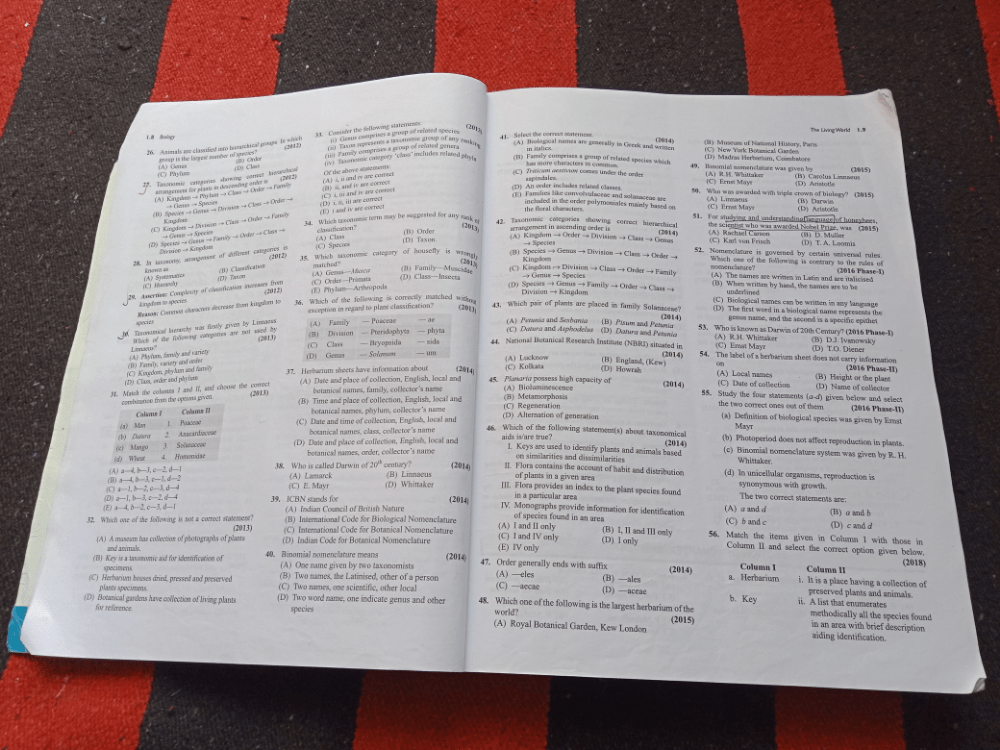 1.8 Biology
26. Animals are classified into hierarchical groups. In which
group is the largest number of species? (2012)
(A) Genus (B) Order
(C) Phylum (D) Class
27. Taxonomic categories showing correct hierarchical
arrangement for plants in descending order is (2012)
(A) Kingdom → Phylum → Class → Order → Family
→ Genus → Species
(B) Species → Genus → Division → Class → Order →
Kingdom
(C) Kingdom → Division → Class → Order → Family
→ Genus → Species
(D) Species → Genus → Family → Order → Class →
Division → Kingdom
28. In taxonomy, arrangement of different categories is
known as (2012)
(A) Systematics (B) Classification
(C) Hierarchy (D) Taxon
29. Assertion: Complexity of classification increases from
kingdom to species (2012)
Reason: Common characters decrease from kingdom to
species
30. Taxonomical hierarchy was firstly given by Linnaeus
Which of the following categories are not used by
Linnaeus? (2013)
(A) Phylum, family and variety
(B) Family, variety and order
(C) Kingdom, phylum and family
(D) Class, order and phylum
31. Match the column I and II, and choose the correct
combination from the options given. (2013)
Column I Column II
(a) Man 1. Poaceae
(b) Datura 2. Anacardiaceae
(c) Mango 3. Solanaceae
(d) Wheat 4. Hominidae
(A) a—4, b—3, c—2, d—1
(B) a—4, b—3, c—1, d—2
(C) a—1, b—2, c—3, d—4
(D) a—1, b—3, c—2, d—4
(E) a—4, b—2, c—3, d—1
32. Which one of the following is not a correct statement?
(2013)
(A) A museum has collection of photographs of plants
and animals.
(B) Key is a taxonomic aid for identification of
specimens.
(C) Herbarium houses dried, pressed and preserved
plants specimens.
(D) Botanical gardens have collection of living plants
for reference.
33. Consider the following statements: (2013)
(i) Genus comprises a group of related species
(ii) Taxon represents a taxonomic group of any ranking
(iii) Family comprises a group of related genera
(iv) Taxonomic category "class" includes related phyla
Of the above statements:
(A) i, ii and iv are correct
(B) ii, and iv are correct
(C) i, iii and iv are correct
(D) i, ii, iii are correct
(E) i and iv are correct
34. Which taxonomic term may be suggested for any rank of
classification? (2013)
(A) Class (B) Order
(C) Species (D) Taxon
35. Which taxonomic category of housefly is wrongly
matched? (2013)
(A) Genus—Musca (B) Family—Muscidae
(C) Order—Primata (D) Class—Insecta
(E) Phylum—Arthropoda
36. Which of the following is correctly matched without
exception in regard to plant classification? (2013)
(A) Family — Poaceae — ae
(B) Division — Pteridophyta — phyta
(C) Class — Bryopsida — sida
(D) Genus — Solanum — um
37. Herbarium sheets have information about (2014)
(A) Date and place of collection, English, local and
botanical names, family, collector's name
(B) Time and place of collection, English, local and
botanical names, phylum, collector's name
(C) Date and time of collection, English, local and
botanical names, class, collector's name
(D) Date and place of collection, English, local and
botanical names, order, collector's name
38. Who is called Darwin of 20th century? (2014)
(A) Lamarck (B) Linnaeus
(C) E. Mayr (D) Whittaker
39. ICBN stands for (2014)
(A) Indian Council of British Nature
(B) International Code for Biological Nomenclature
(C) International Code for Botanical Nomenclature
(D) Indian Code for Botanical Nomenclature
40. Binomial nomenclature means (2014)
(A) One name given by two taxonomists
(B) Two names, the Latinised, other of a person
(C) Two names, one scientific, other local
(D) Two word name, one indicate genus and other
species
The Living World 1.9
41. Select the correct statement. (2014)
(A) Biological names are generally in Greek and written
in italics.
(B) Family comprises a group of related species which
has more characters in common.
(C) Triticum aestivum comes under the order
sapindales.
(D) An order includes related classes.
(E) Families like convolvulaceae and solanaceae are
included in the order polymoniales mainly based on
the floral characters.
42. Taxonomic categories showing correct hierarchical
arrangement in ascending order is (2014)
(A) Kingdom → Order → Division → Class → Genus
→ Species
(B) Species → Genus → Division → Class → Order →
Kingdom
(C) Kingdom → Division → Class → Order → Family
→ Genus → Species
(D) Species → Genus → Family → Order → Class →
Division → Kingdom
43. Which pair of plants are placed in family Solanaceae?
(2014)
(A) Petunia and Sesbania (B) Pisum and Petunia
(C) Datura and Asphodelus (D) Datura and Petunia
44. National Botanical Research Institute (NBRI) situated in
(2014)
(A) Lucknow (B) England, (Kew)
(C) Kolkata (D) Howrah
45. Planaria possess high capacity of (2014)
(A) Bioluminescence
(B) Metamorphosis
(C) Regeneration
(D) Alternation of generation
46. Which of the following statement(s) about taxonomical
aids is/are true? (2014)
I. Keys are used to identify plants and animals based
on similarities and dissimilarities
II. Flora contains the account of habit and distribution
of plants in a given area
III. Flora provides an index to the plant species found
in a particular area
IV. Monographs provide information for identification
of species found in an area
(A) I and II only (B) I, II and III only
(C) I and IV only (D) I only
(E) IV only
47. Order generally ends with suffix (2014)
(A) —eles (B) —ales
(C) —aecae (D) —aceae
48. Which one of the following is the largest herbarium of the
world? (2015)
(A) Royal Botanical Garden, Kew London
(B) Museum of National History, Paris
(C) New York Botanical Garden
(D) Madras Herbarium, Coimbatore
49. Binomial nomenclature was given by (2015)
(A) R.H. Whittaker (B) Carolus Linnaeus
(C) Ernst Mayr (D) Aristotle
50. Who was awarded with triple crown of biology? (2015)
(A) Linnaeus (B) Darwin
(C) Ernst Mayr (D) Aristotle
51. For studying and understanding language of honeybees,
the scientist who was awarded Nobel Prize, was (2015)
(A) Rachael Carson (B) D. Muller
(C) Karl von Frisch (D) T. A. Loomis
52. Nomenclature is governed by certain universal rules.
Which one of the following is contrary to the rules of
nomenclature? (2016 Phase-I)
(A) The names are written in Latin and are italicised
(B) When written by hand, the names are to be
underlined
(C) Biological names can be written in any language
(D) The first word in a biological name represents the
genus name, and the second is a specific epithet
53. Who is known as Darwin of 20th Century? (2016 Phase-I)
(A) R.H. Whittaker (B) D.J. Ivanowsky
(C) Ernst Mayr (D) T.O. Diener
54. The label of a herbarium sheet does not carry information
on (2016 Phase-II)
(A) Local names (B) Height or the plant
(C) Date of collection (D) Name of collector
55. Study the four statements (a-d) given below and select
the two correct ones out of them (2016 Phase-II)
(a) Definition of biological species was given by Ernst
Mayr
(b) Photoperiod does not affect reproduction in plants.
(c) Binomial nomenclature system was given by R. H.
Whittaker.
(d) In unicellular organisms, reproduction is
synonymous with growth.
The two correct statements are:
(A) a and d (B) a and b
(C) b and c (D) c and d
56. Match the items given in Column I with those in
Column II and select the correct option given below.
(2018)
Column I Column II
a. Herbarium i. It is a place having a collection of
preserved plants and animals.
b. Key ii. A list that enumerates
methodically all the species found
in an area with brief description
aiding identification.